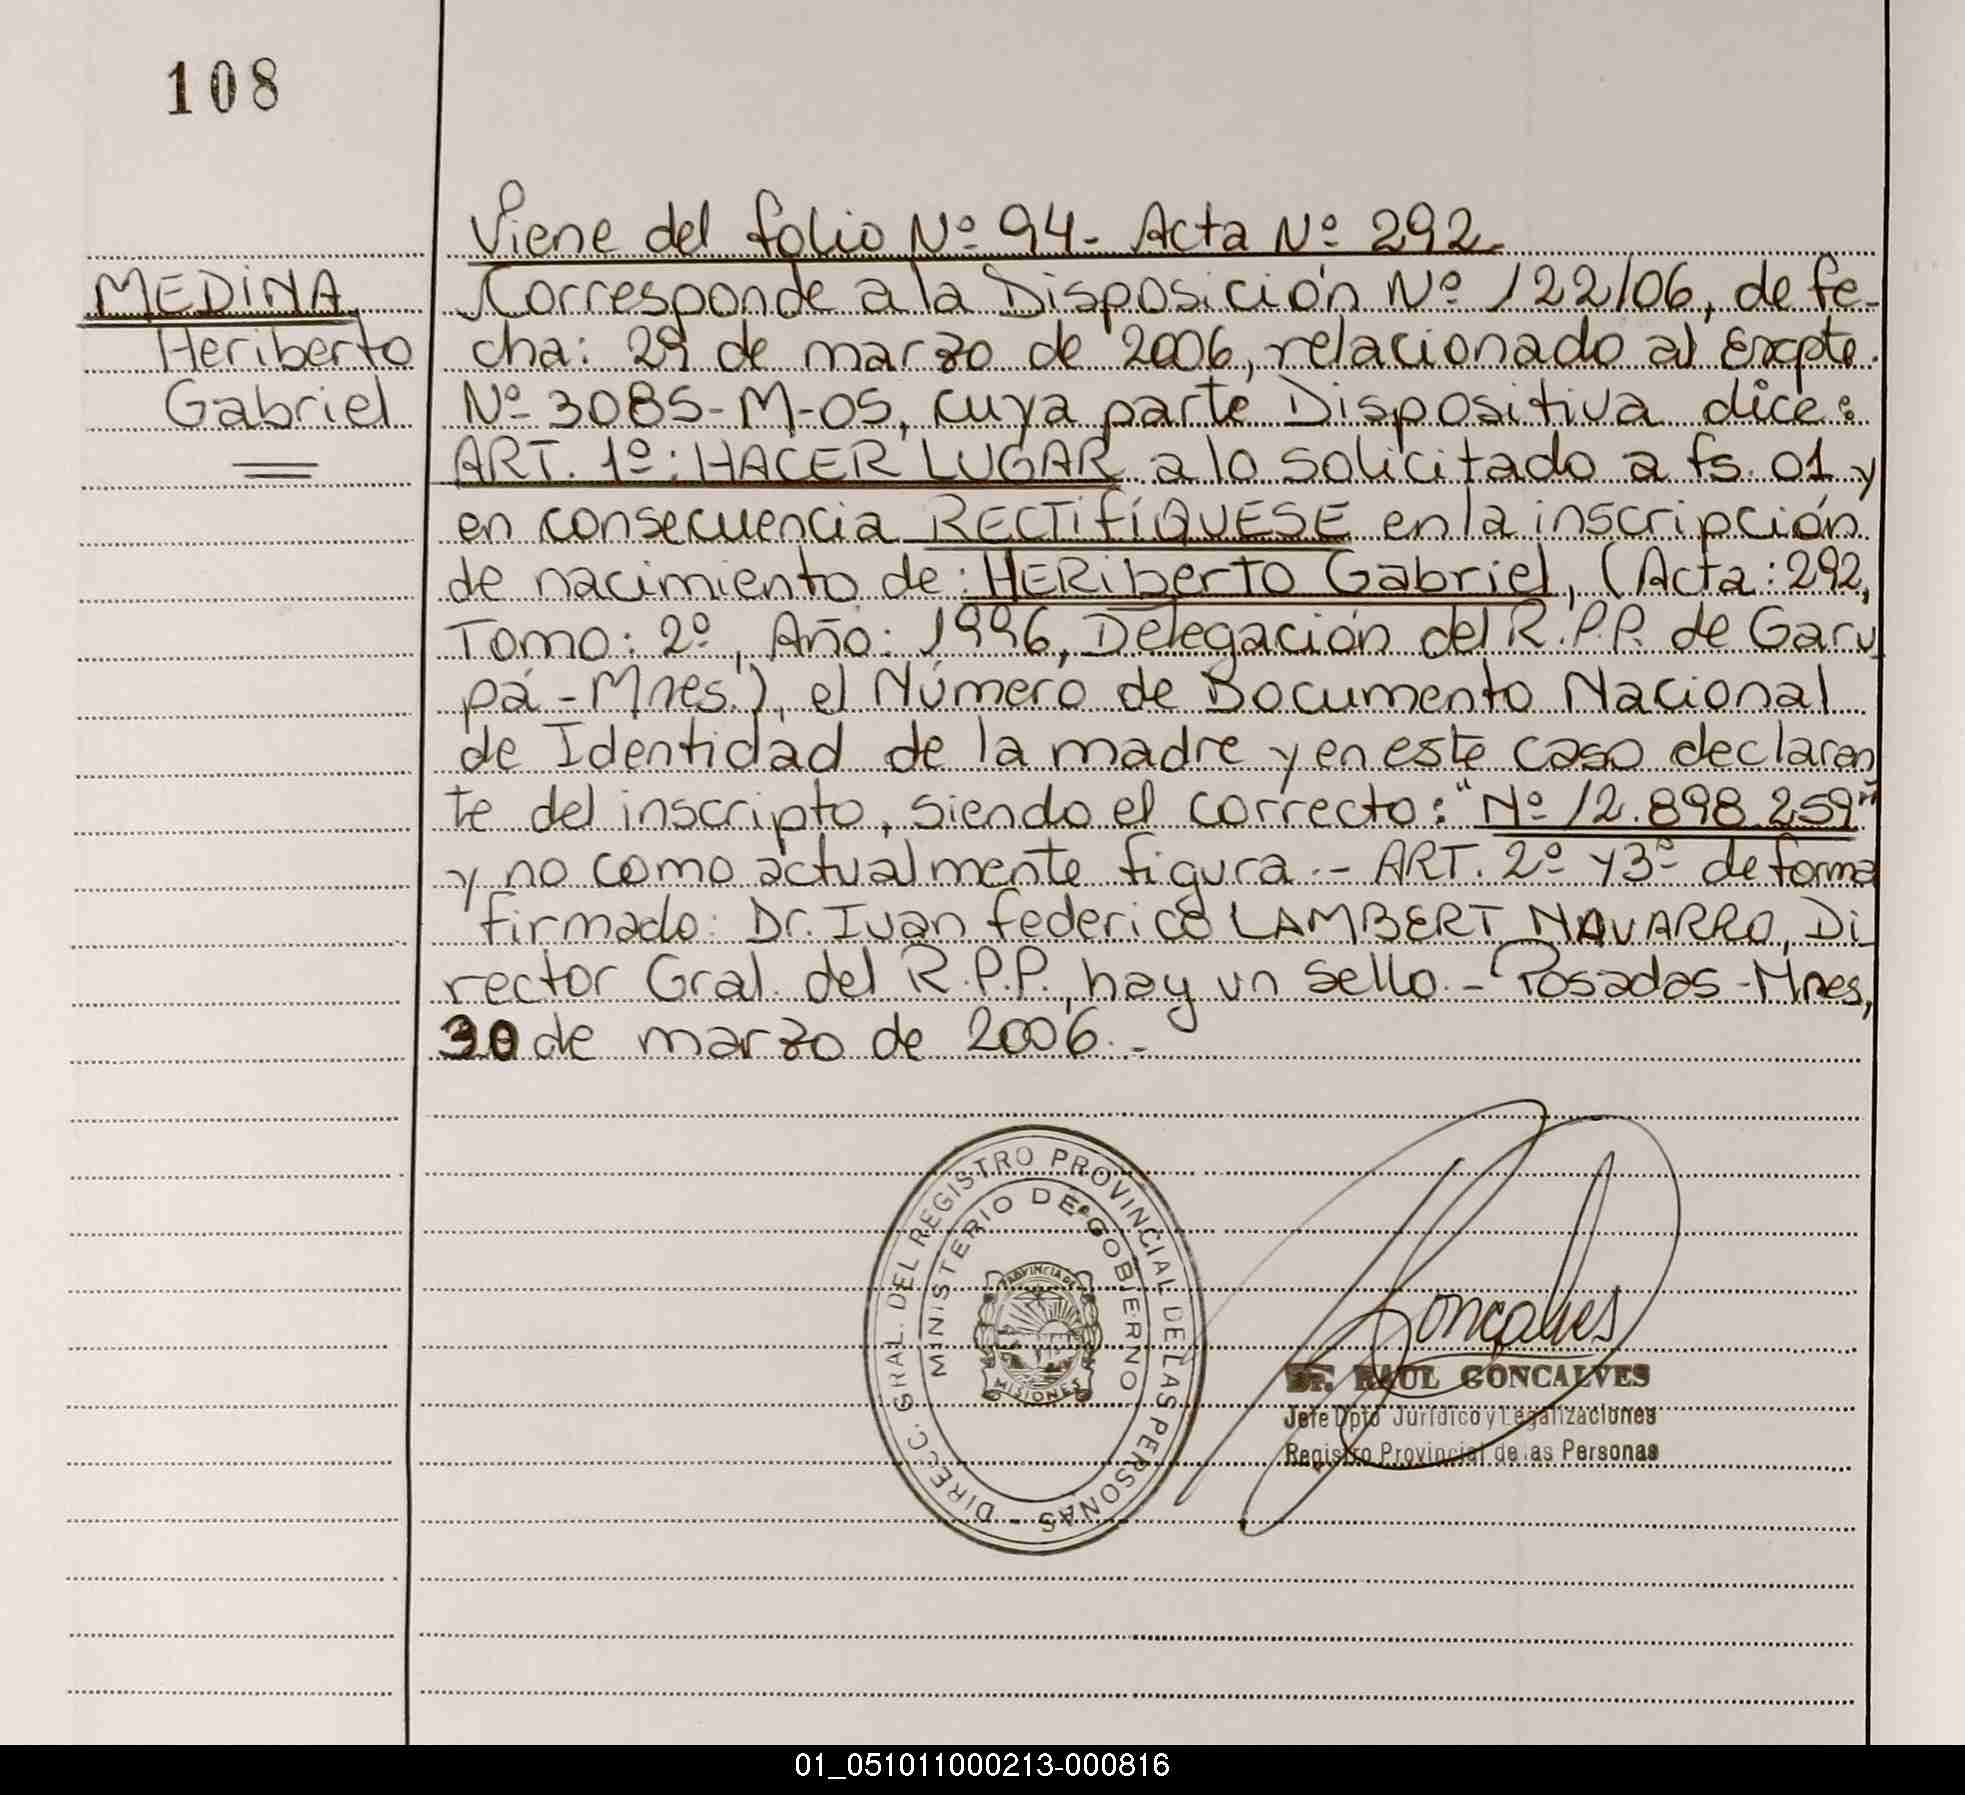 108
Viene del folio Nº 94- Acta Nº 292-
MEDINA
Heriberto
Gabriel
Corresponde a la Disposición Nº 122/06, de fe-
cha: 29 de marzo de 2006, relacionado al Expte.
Nº 3085-M-05, cuya parte Dispositiva dice:
ART. 1º: HACER LUGAR a lo solicitado a fs. 01 y
en consecuencia RECTIFÍQUESE en la inscripción
de nacimiento de: HERiberto Gabriel, (Acta: 292,
Tomo: 2º, Año: 1996, Delegación del R.P.P. de Garu_
pá - Mnes.), el Número de Documento Nacional
de Identidad de la madre y en este caso declaran_
te del inscripto, siendo el correcto: "Nº 12.898.259"
y no como actualmente figura.- ART. 2º y 3º de forma
firmado: Dr. Ivan Federico LAMBERT NAVARRO, Di_
rector Gral. del R.P.P., hay un sello.- Posadas-Mnes,
30 de marzo de 2006.-
DIRECC. GRAL. DEL REGISTRO PROVINCIAL DE LAS PERSONAS -
MINISTERIO DE GOBIERNO
PROVINCIA DE
MISIONES
Gonçalves
Dr. RAUL GONCALVES
Jefe Dpto Jurídico y Legalizaciones
Registro Provincial de las Personas
01_051011000213-000816